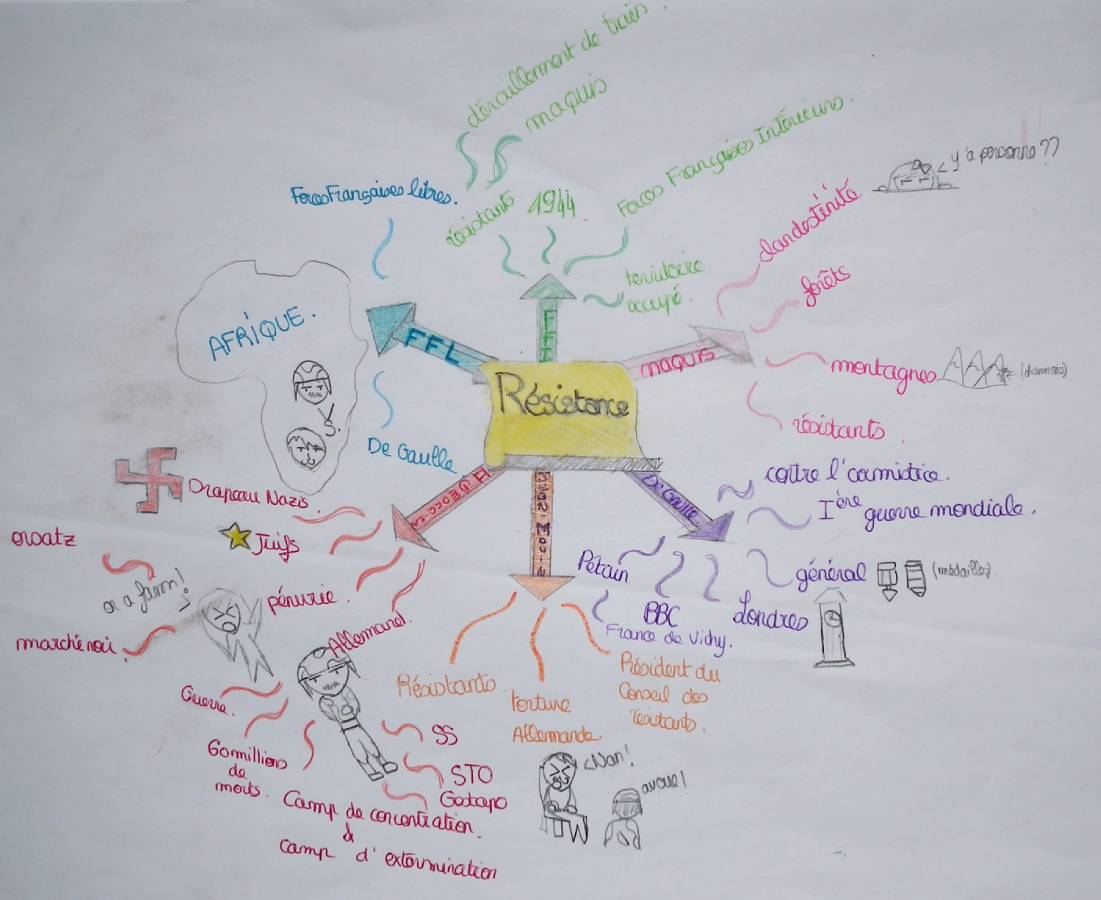 Résistance
FFI
déraillement de train.
maquis
résistants
1944
Forces Françaises Intérieures.
territoire
occupé.
maquis
clandestinité
y'a personne??
forêts
montagnes
résistants.
De Gaulle
contre l'armistice.
Ière guerre mondiale.
général
(médailles)
Londres
BBC
Pétain
France de Vichy.
Jean-Moulin
Résistants
torture
Allemande
<Nan!
avoue!
Président du
Conseil des
résistants.
Drapeau Nazis.
Juifs
pénurie.
ersatz
on a faim!
marché noir.
Allemand.
Guerre.
60 millions
de
morts.
Camp de concentration.
&
camp d'extermination
Gestapo
STO
SS
FFL
Forces Françaises libres.
AFRIQUE.
VS.
De Gaulle